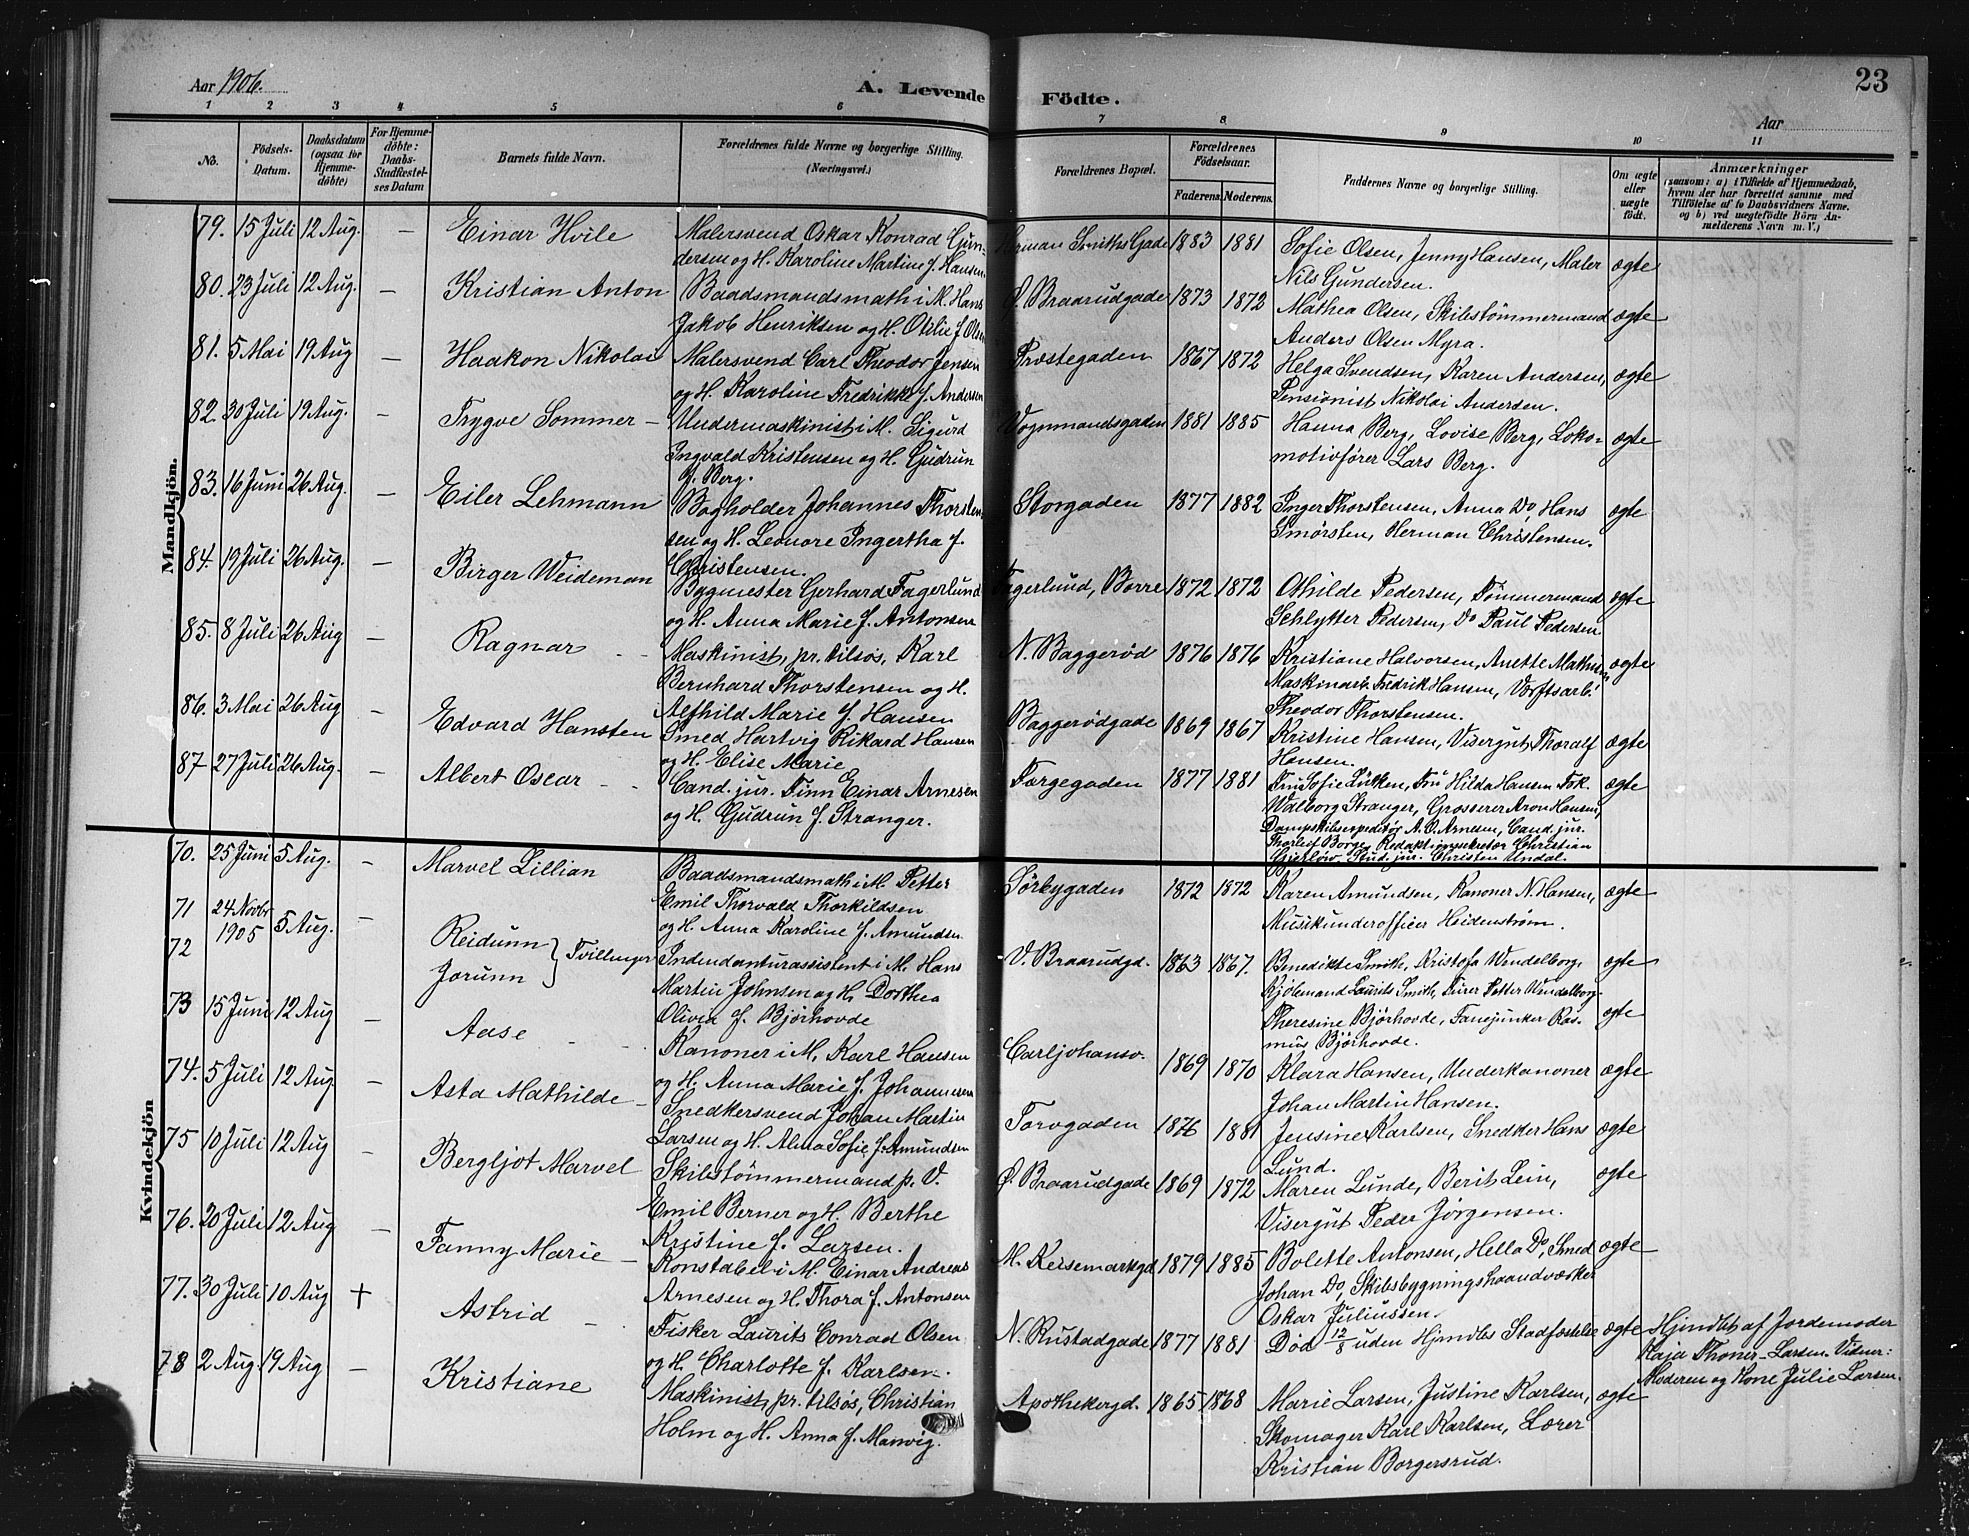 Aar 1906.
A. Levende Födte.
23
Aar
1 2 3 4 5 6 7 8 9 10 11
No.
Födsels-Datum.
Daabsdatum (ogsaa for Hjemme-döbte)
For Hjemme-döbte: Daabs-Stadfæstel-ses Datum
Barnets fulde Navn.
Forældrenes fulde Navne og borgerlige Stilling. (Næringsvei.)
Forældrenes Bopæl.
Forældrenes Födselsaar.
Faderens. Moderens.
Faddernes Navne og borgerlige Stilling.
Om ægte eller uægte födt.
Anmærkninger
(saasom: a) i Tilfælde af Hjemmedaab, hvem der har forrettet samme med Tilföielse af to Daabsvidners Navne. og b) ved uægtefödte Börn An-melderens Navn m. V.)
Mandkjön.
79. 15 Juli 12 Aug. — Einar Hvile
Malersvend Oskar Konrad Gun-
dersen og H. Karoline Martine f. Hansen
Herman Smiths Gade 1883 1881
Sofie Olsen, Jenny Hansen, Maler
Nils Gundersen.
ægte
80. 23 Juli 12 Aug. — Kristian Anton
Baadsmandsmath i M. Hans
Jakob Henriksen og H. Otilie f. Olsen
Ø. Braarudgade 1873 1872
Mathea Olsen, Skibstømmermand
Anders Olsen Myra.
ægte
81. 5 Mai 19 Aug — Haakon Nikolai
Malersvend Carl Theodor Jensen
og H. Karoline Fredrikke f. Andersen
Præstegaden 1867 1872
Helga Svendsen, Karen Andersen,
Pensionist Nikolai Andersen.
ægte
82. 30 Juli 19 Aug. — Trygve Sommer
Undermaskinist i M. Sigurd
Ingvald Kristensen og H. Gudrun
f. Berg.
Vognmandsgaden 1881 1885
Hanna Berg, Lovise Berg, Loko-
motivfører Lars Berg.
ægte
83. 16 Juni 26 Aug. — Eiler Lehmann
Bogholder Johannes Thorsten-
sen og H. Leonore Ingertha f.
Christensen.
Storgaden 1877 1882
Inger Thorstensen, Anna Do, Hans
Smørsten, Herman Christensen.
ægte
84. 19 Juli 26 Aug. — Birger Weideman
Bygmester Gerhard Fagerlund
og H. Anna Marie f. Antonsen
Fagerlund, Borre 1872 1872
Othilde Pedersen, Tømmermand
Schlytter Pedersen, Do Paul Pedersen
ægte
85. 8 Juli 26 Aug — Ragnar
Maskinist, pr. tilsøs, Karl
Bernhard Thorstensen og H.
Alfhild Marie f. Hansen
N. Baggerød 1876 1876
Kristiane Halvorsen, Anette Mathisen
Maskinarb. Fredrik Hansen, Værftsarb.
Theodor Thorstensen.
ægte
86. 3 Mai 26 Aug — Edvard Hansten
Smed Hartvig Rikard Hansen
og H. Elise Marie
Baggerødgade 1869 1867
Kristine Hansen, Visergut Thoralf
Hansen.
ægte
87 27 Juli 26 Aug. — Albert Oscar
Cand. jur. Finn Einar Arnesen
og H. Gudrun f. Stranger.
Færgegaden 1877 1881
Fru Sofie Lütken, Fru Hilda Hansen Frk.
Walborg Stranger, Grosserer Aron Hansen,
Dampskibsexpeditør A. O. Arnesen, Cand. jur.
Thorleif Borge, Redaktionssekretær Christian
Gierløw, Stud. jur. Christen Undal.
ægte
Kvindekjön
70. 25 Juni 5 Aug. — Marvel Lillian
Baadsmandsmath i M. Petter
Emil Thorvald Thorkildsen
og H. Anna Karoline f. Amundsen
Sørbygaden 1872 1872
Karen Amundsen, Kanoner N. Hansen,
Musikunderofficer Heidenstrøm.
ægte
71 24 Novbr 1905 5 Aug. — Reidunn
72 Jorunn } Tvillinger
Indendanturassistent i M. Hans
Martin Johnsen og H. Dorthea
Olivia f. Bjørhovde
V. Braarudgd. 1863 1867.
Benedikte Smith, Kristofa Wendelborg,
Kjølemand Laurits Smith, Furer Petter Wendelborg
Theresine Bjørhovde, Fanejunker Ras-
mus Bjørhovde.
ægte
ægte
73 15 Juni 12 Aug — Aase
Kanoner i M. Karl Hansen
og H. Anna Marie f. Johannesen
Carljohansv. 1869 1870
Klara Hansen, Underkanoner
Johan Martin Hansen.
ægte
74. 5 Juli 12 Aug — Asta Mathilde
Snedkersvend Johan Martin
Larsen og H. Alma Sofie f. Amundsen
Torvgaden 1876 1881
Jensine Karlsen, Snedker Hans
Lund.
ægte
75 10 Juli 12 Aug — Bergljot Marvel
Skibstømmermand p. V.
Emil Berner og H. Berthe
Kristine f. Larsen.
Ø. Braarudgade 1869 1872
Maren Lunde, Berit Lein,
Visergut Peder Jørgensen.
ægte
76. 20 Juli 12 Aug — Fanny Marie
Konstabel i M. Einar Andreas
Arnesen og H. Thora f. Antonsen
M. Keisemarkgd 1879 1885
Bolette Antonsen, Hella Do, Smed
Johan Do, Skibsbygningshaandværker
Oskar Juliussen.
ægte
77. 30 Juli 10 Aug + Astrid
Fisker Laurits Conrad Olsen
og H. Charlotte f. Karlsen.
N. Rustadgade 1877 1881
Død 12/8 uden Hjmdbs Stadfæstelse
ægte
Hjmdbt af Jordemoder
Kaja Thoner-Larsen. Vidner:
Moderen og Kone Julie Larsen.
78 2 Aug. 19 Aug — Kristiane
Maskinist, pr. tilsøs, Christian
Holm og H. Anna f. Manvig.
Apothekergd. 1865 1868
Marie Larsen, Justine Karlsen,
Skomager Karl Karlsen, Lærer
Kristian Borgersrud.
ægte